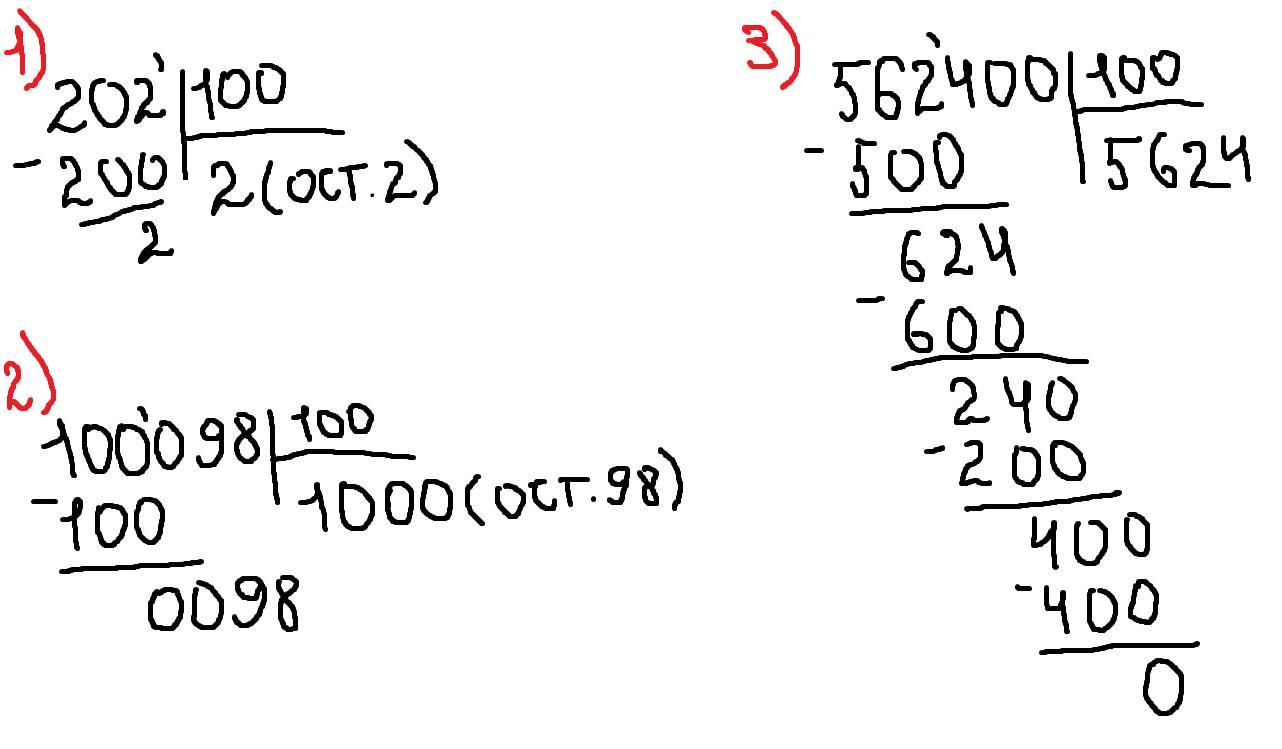 1)
202 100
- 200 2 (ост. 2)
2
2)
100098 100
- 100 1000 (ост. 98)
0098
3)
562400 100
- 500 5624
624
- 600
240
- 200
400
- 400
0